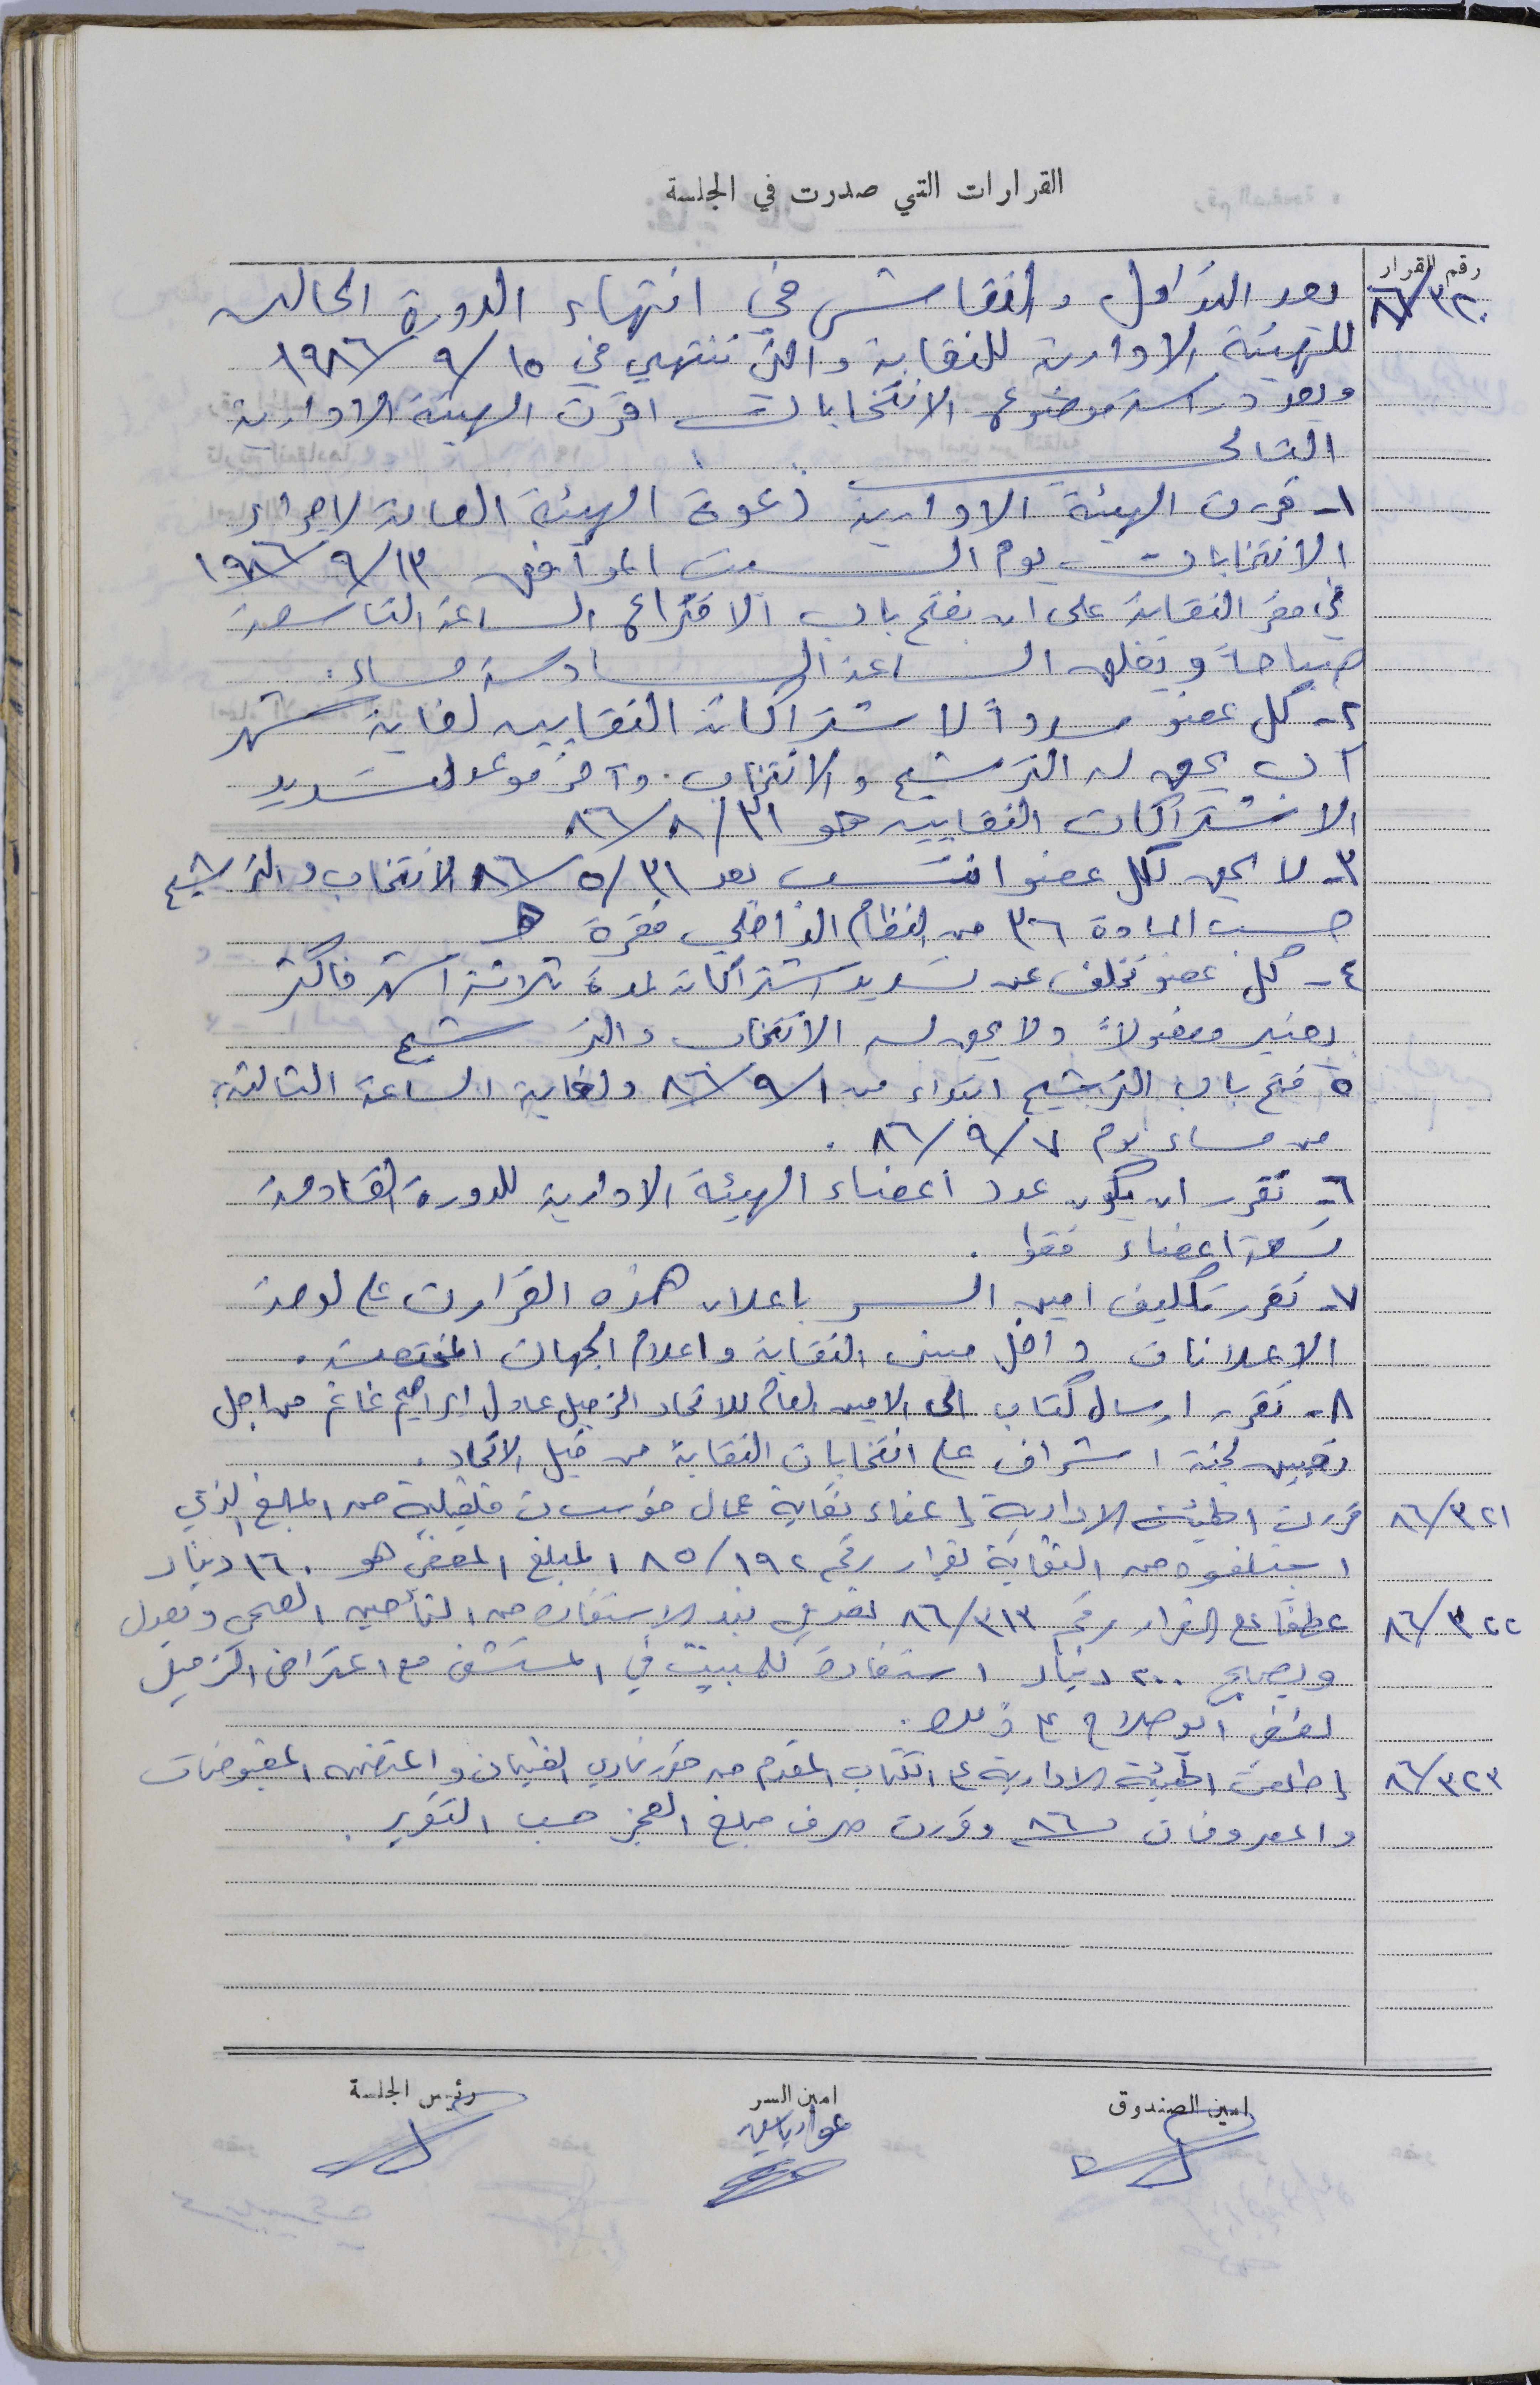 القرارات التي صدرت في الجلسة
رقم القرار
٨٦/٣٢٠
بعد التداول والنقاش في انتهاء الدورة الحاليه
للهيئة الادارية للنقابة والتي تنتهي في ١٩٨٦/٩/١٥
وبعد دراسة موضوع الانتخابات اقرت الهيئة الادارية
التالي
١- قررت الهيئة الادارية دعوة الهيئة العامة لاجراء
الانتخابات يوم السبت الموافق ١٩٨٦/٩/١٣
في مقر النقابة على ان يفتح باب الاقتراع الساعة التاسعة
صباحاً ويغلق الساعة السادسة مساء.
٢- كل عضو مسدداً لاشتراكاته النقابيه لغاية شهر
آب يحق له الترشيح والانتخاب. وآخر موعد لتسديد
الاشتراكات النقابيه هو ٨٦/٨/٣١
٣- لا يحق لكل عضو انتسب بعد ٨٦/٥/٣١ الانتخاب والترشيح
حسب المادة ٣٦ من النظام الداخلي فقرة
٤- كل عضو تخلف عن تسديد اشتراكاته لمدة ثلاثة اشهر فاكثر
يعتبر مفصولاً ولا يحق له الانتخاب والترشيح
٥ فتح باب الترشيح ابتداء من ٨٦/٩/١ ولغاية الساعة الثالثة
من مساء يوم ٨٦/٩/٧ .
٦- تقرر ان يكون عدد اعضاء الهيئة الادارية للدورة القادمة
تسعة اعضاء فقط .
٧- تقرر تكليف امين السر باعلان هذه القرارت على لوحة
الاعلانات داخل مبنى النقابة واعلام الجهات المختصة .
٨- تقرر ارسال كتاب الى الامين العام للاتحاد الزميل عادل ابراهيم غانم من اجل
تعيين لجنة اشراف على انتخابات النقابة من قبل الاتحاد .
٨٦/٣٢١
قررت الهيئة الادارية إعفاء نقابة عمال مؤسسات قلقيلية من المبلغ الذي
استلفوه من النقابة بقرار رقم ٨٥/١٩٢ المبلغ المعفى هو ١٦٠ دينار
٨٦/٣٢٢
عطفاً على القرار رقم ٨٦/٣١٣ تعديل بند الاستفاده من التأمين الصحي وتعدل
ويصبح ٢٠٠ دينار استفادة للمبيت في المستشفى مع اعتراض الزميل
لطفي ابو صلاح على ذلك .
٨٦/٣٢٣
إطلعت الهيئة الادارية على الكتاب المقدم من مركز نادي الفتيان والمتضمن المقبوضات
والمصروفات ٨٦ وقررت صرف مبلغ العجز حسب التقرير .
امين الصندوق
امين السر
رئيس الجلسة